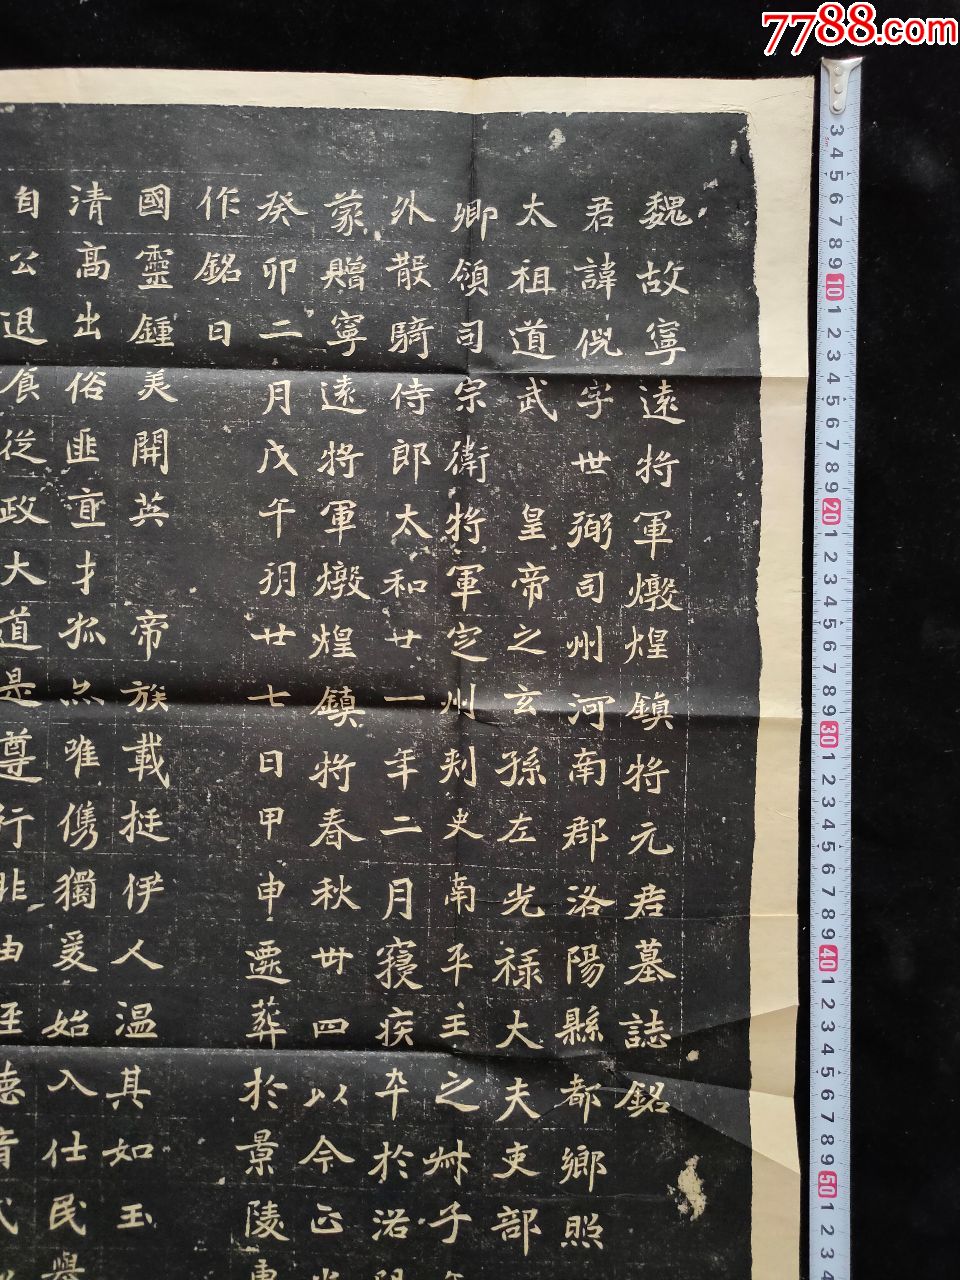 7788.com
魏故寧遠將軍燉煌鎮將元君墓誌銘
君諱倪字世弼司州河南郡洛陽縣都鄉照
太祖道武皇帝之玄孫左光祿大夫吏部
卿領司宗衛將軍定州刺史南平王之
外散騎侍郎太和廿一年二月寑疾卒於洛
蒙贈寧遠將軍燉煌鎮將春秋卅四以今正光
癸卯二月戊午朔廿七日甲申遷葬於景陵東
作銘曰
國靈鍾美開英帝族載挺伊人温其如玉
清高出俗匪亟才孤亦唯儁獨爰始入仕民譽
自公退食從政大道是尊行非由徑德音
3 4 5 6 7 8 9 10 1 2 3 4 5 6 7 8 9 20 1 2 3 4 5 6 7 8 9 30 1 2 3 4 5 6 7 8 9 40 1 2 3 4 5 6 7 8 9 50 1 2 3 4